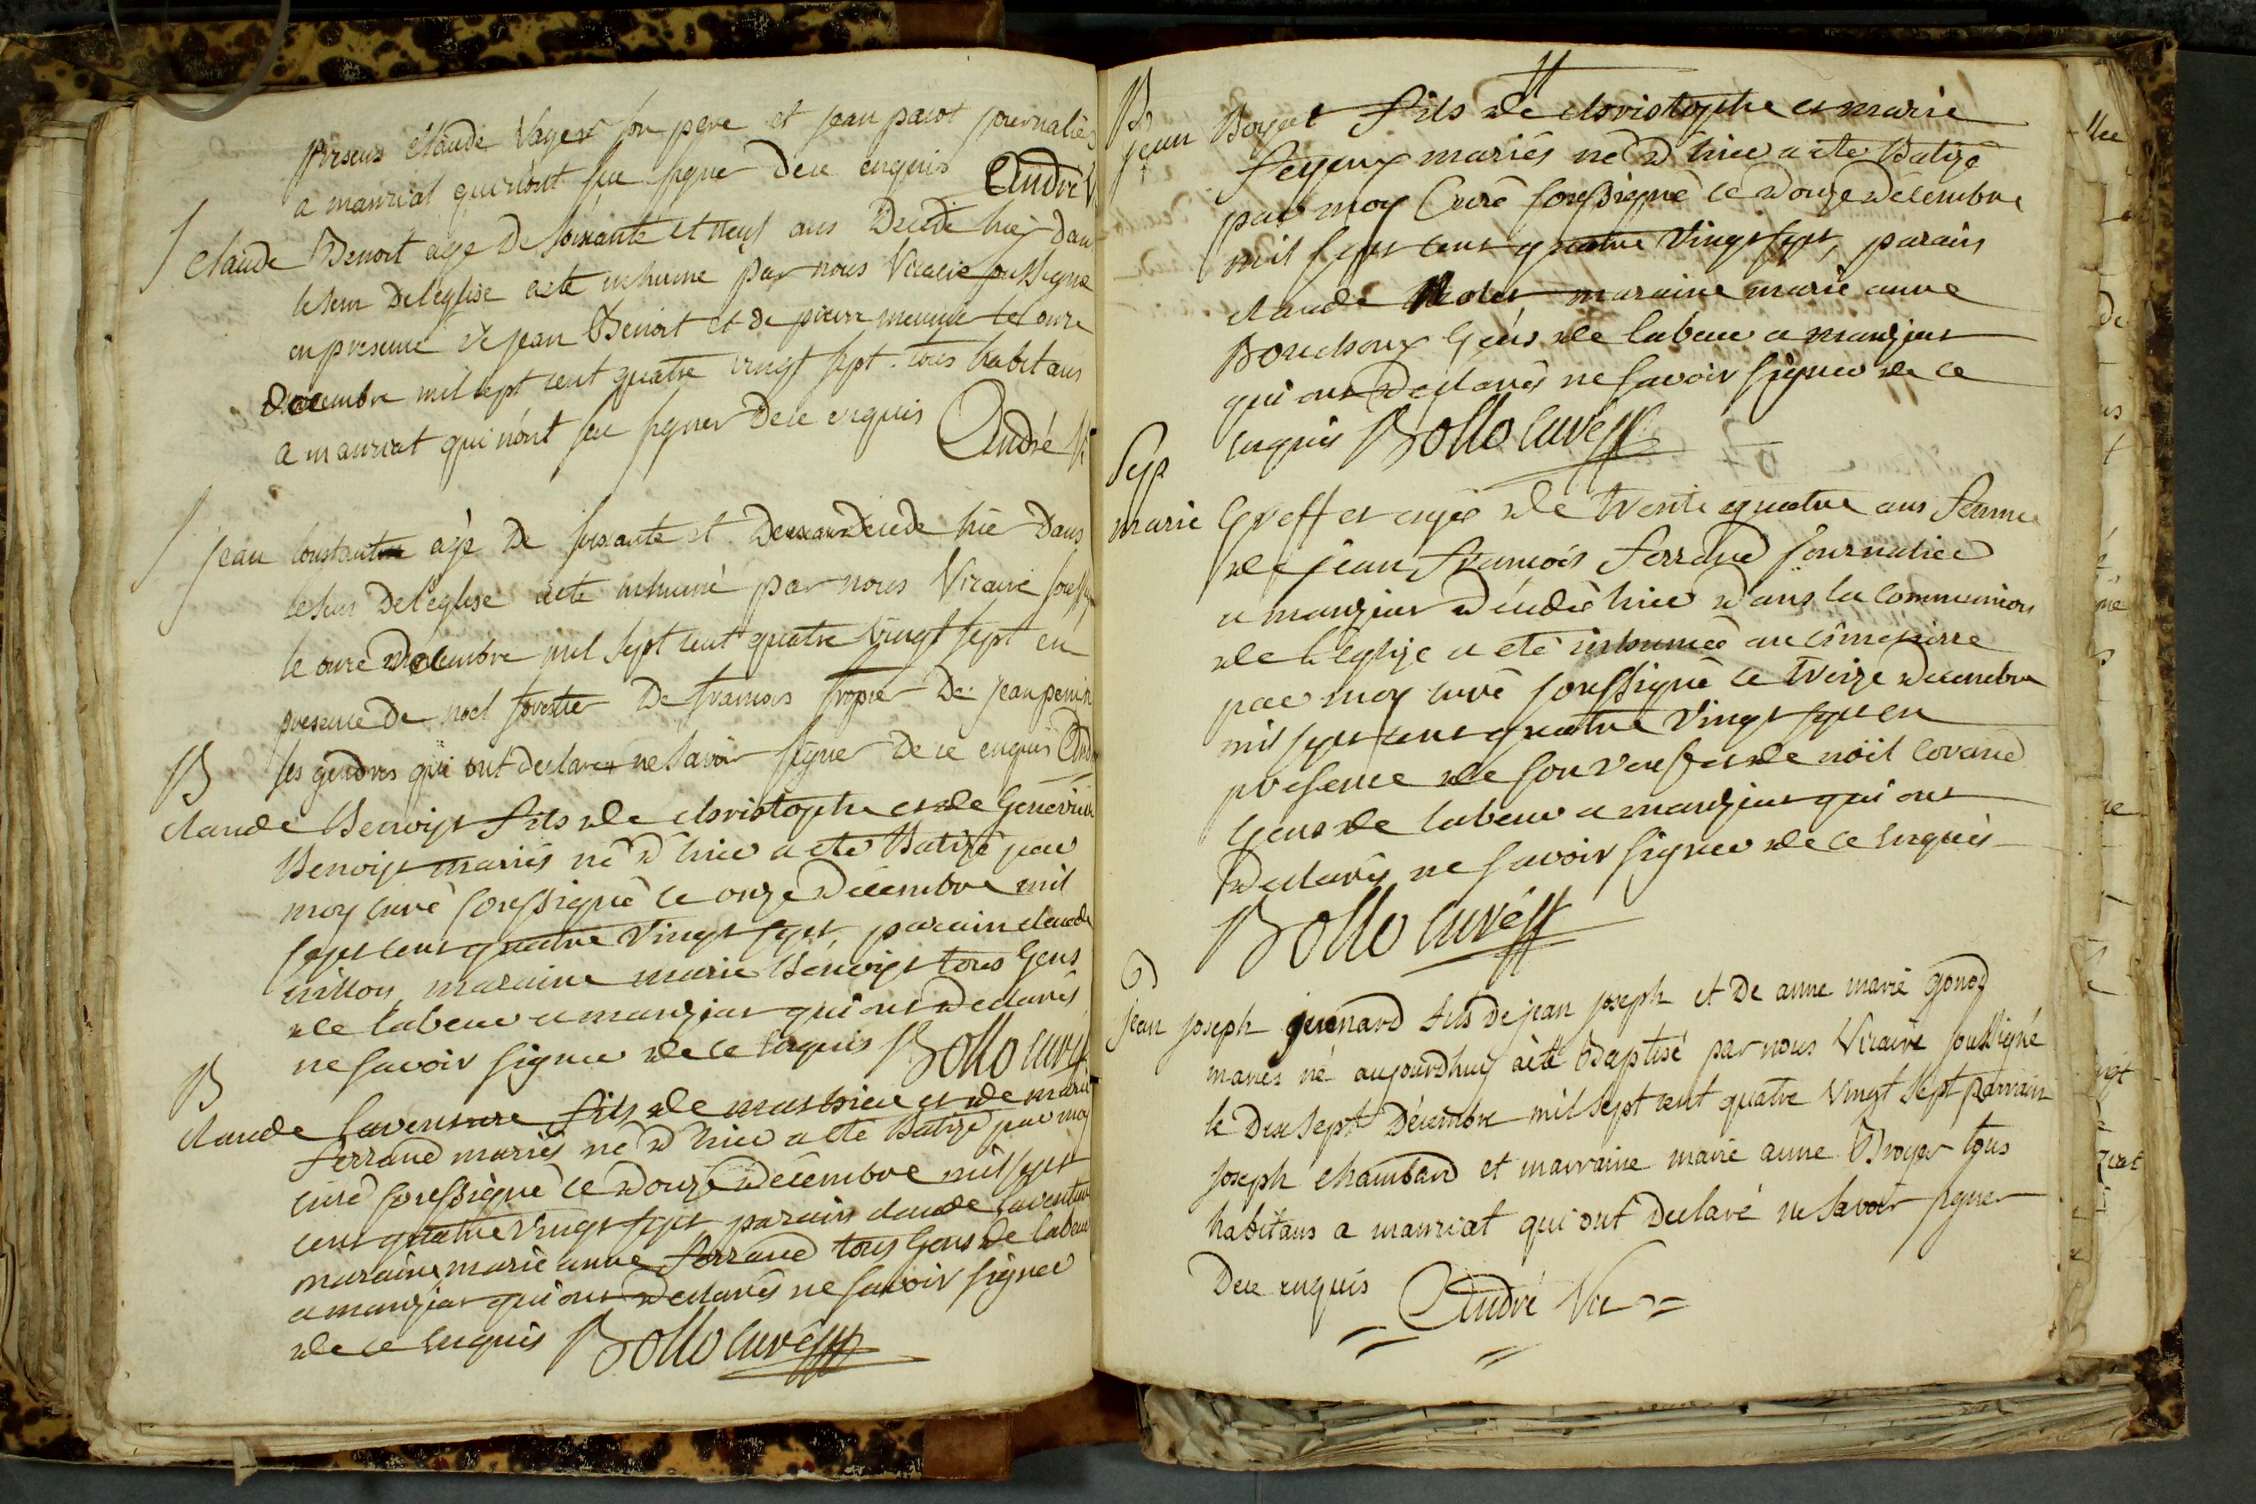 presens claude Vayer son pere et jean pacot journaliers
a manziat qui n'ont su signer de ce enquis André V
claude Benoit agé de soixante et neuf ans decedé hier dan
le sein de l'eglise a ete inhumé par nous Vicaire soussigné
en presence de jean Benoit et de pierre meunié le onze
decembre mil sept cent quatre vingt sept tous habitans
a manziat qui n'ont su signer de ce enquis André Vi
jean constantin agé de soixante et deux ans decedé hier dans
le sein de l'eglise a ete inhumé par nous Vicaire souss
le onze decembre mil sept cent quatre vingt sept en
presence de noel forestier de francois de jean perrin
B ses gendres qui ont declarez ne savoir signer de ce enquis And
claude Benoist fils de christophe et de Genevieve
Benoist mariés né d'hier a eté Batizé par
moy curé soussigné ce onze décembre mil
sept cent quatre vingt sept parain claude
maraine marie Benoist tous Gens
de labeur a manziat qui ont declarés
ne savoir signer de ce enquis Bollo curé
B
claude laventure fils de mathieu et de marie
ferrand mariés né d'hier a eté Batizé par moy
curé soussigné ce douze décembre mil sept
cent quatre vingt sept parain claude laventure
maraine marie anne ferrand tous Gens de labeur
a manziat qui ont declarés ne savoir signer
de ce enquis Bollo curé
B
jean Boyat fils de christophe et marie
feyeux mariés né d'hier a eté Batizé
par moy Curé soussigné ce douze décembre
mil sept cent quatre vingt sept, parain
claude maraine marie anne
Bouchoux Gens de labeur a manziat
qui ont declarés ne savoir signer de ce
enquis Bollo curé
Sep
marie Greffet agée de trente quatre ans femme
de jean francois ferrand journalier
a manziat décédée hier dans la communion
de l'eglize a eté inhumée au cimetierre
par moy curé soussigné ce treize decembre
mil sept cent quatre vingt sept en
presence de son veuf et de noël
Gens de labeur a manziat qui ont
declarés ne savoir signer de ce enquis
Bollo curé
B
jean joseph guenard fils de jean joseph et de anne marie gonod
mariés né aujourdhuy a été Baptisé par nous Vicaire soussigné
le dix sept Décembre mil sept cent quatre vingt sept parrain
joseph chambard et marraine marie anne Broyer tous
habitans a manziat qui ont declaré ne savoir signer
de ce enquis André Vic